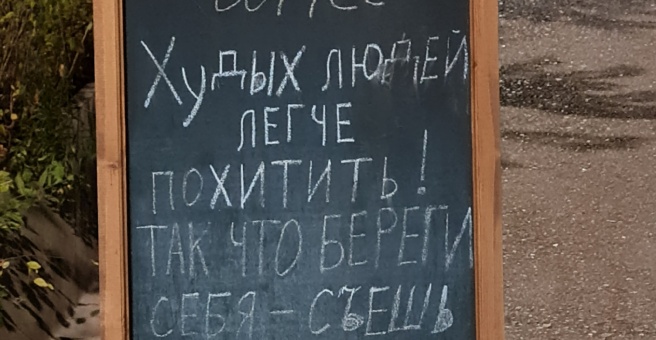 Худых людей
легче
похитить!
так что береги
себя – съешь